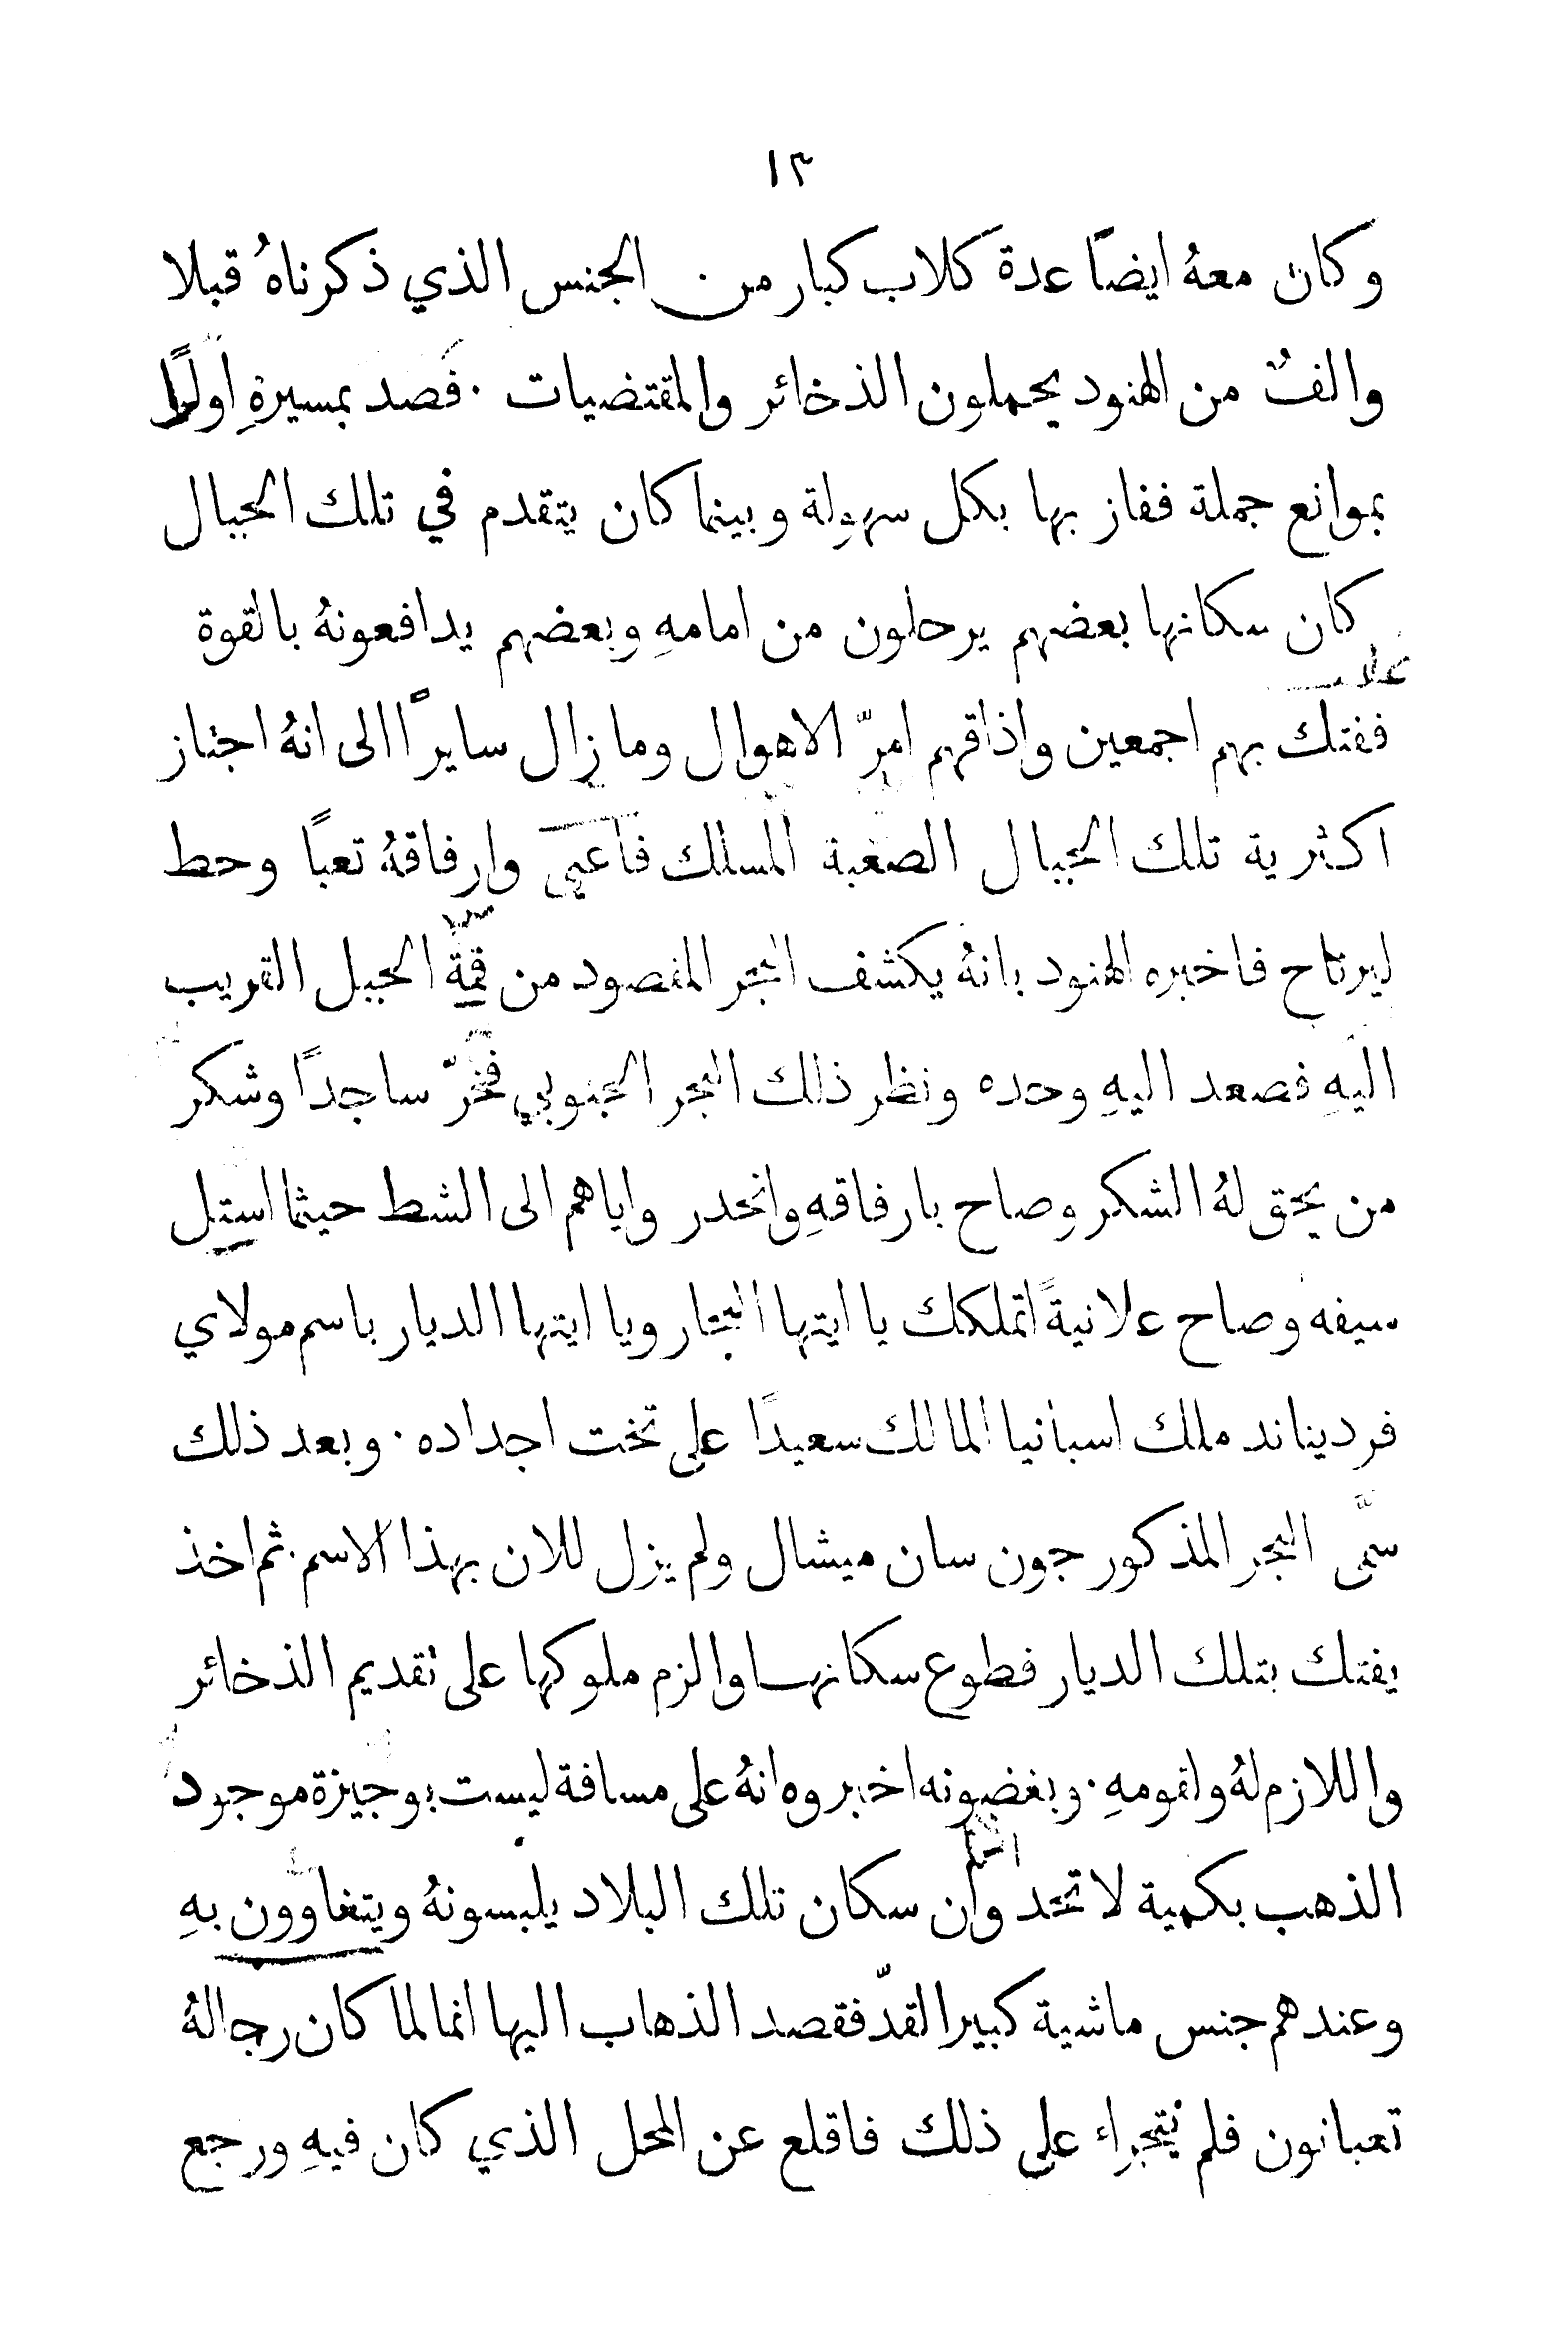 ١٣
وكان معهُ ايضًا عدة كلاب كبار من الجنس الذي ذكرناهُ قبلا
والفٌ من الهنود يحملون الذخائر والمقتضيات ٠ فصد بمسيرهِ اولًا
بموانع جملة ففاز بها بكل سهولة وبينما كان يتقدم في تلك الجبال
كان سكانها بعضهم يرحلون من امامهِ وبعضهم يدافعونهُ بالقوة
ففتك بهم اجمعين واذاقهم امرّ الاهوال وما زال سايرًا الى انهُ اجتاز
اكثرية تلك الجبال الصعبة المسلك فاعيى وارفاقهُ تعبًا وحط
ليرتاح فاخبره الهنود بانهُ يكشف البحر المقصود من قمَّة الجبل القريب
اليهِ فصعد اليهِ وحده ونظر ذلك البحر الجنوبي فخرّ ساجدًا وشكر
من يحق لهُ الشكر وصاح بارفاقهِ وانحدر واياهم الى الشط حيثما استل
سيفه وصاح علانيةً اتملكك يا ايتها البحار ويا ايتها الديار باسم مولاي
فرديناند ملك اسبانيا المالك سعيدًا على تخت اجداده ٠ وبعد ذلك
سمَّى البحر المذكور جون سان ميشال ولم يزل للان بهذا الاسم ٠ ثم اخذ
يفتك بتلك الديار فطوع سكانها والزم ملوكها على تقديم الذخائر
واللازم لهُ ولقومهِ ٠ وبغضونه اخبروه انهُ على مسافة ليست بوجيزة موجود
الذهب بكمية لا تحد وان سكان تلك البلاد يلبسونهُ ويتغاوون بهِ
وعندهم جنس ماشية كبير القدّ فقصد الذهاب اليها انما لما كان رجالهُ
تعبانون فلم يتجراء على ذلك فاقلع عن المحل الذي كان فيهِ ورجع